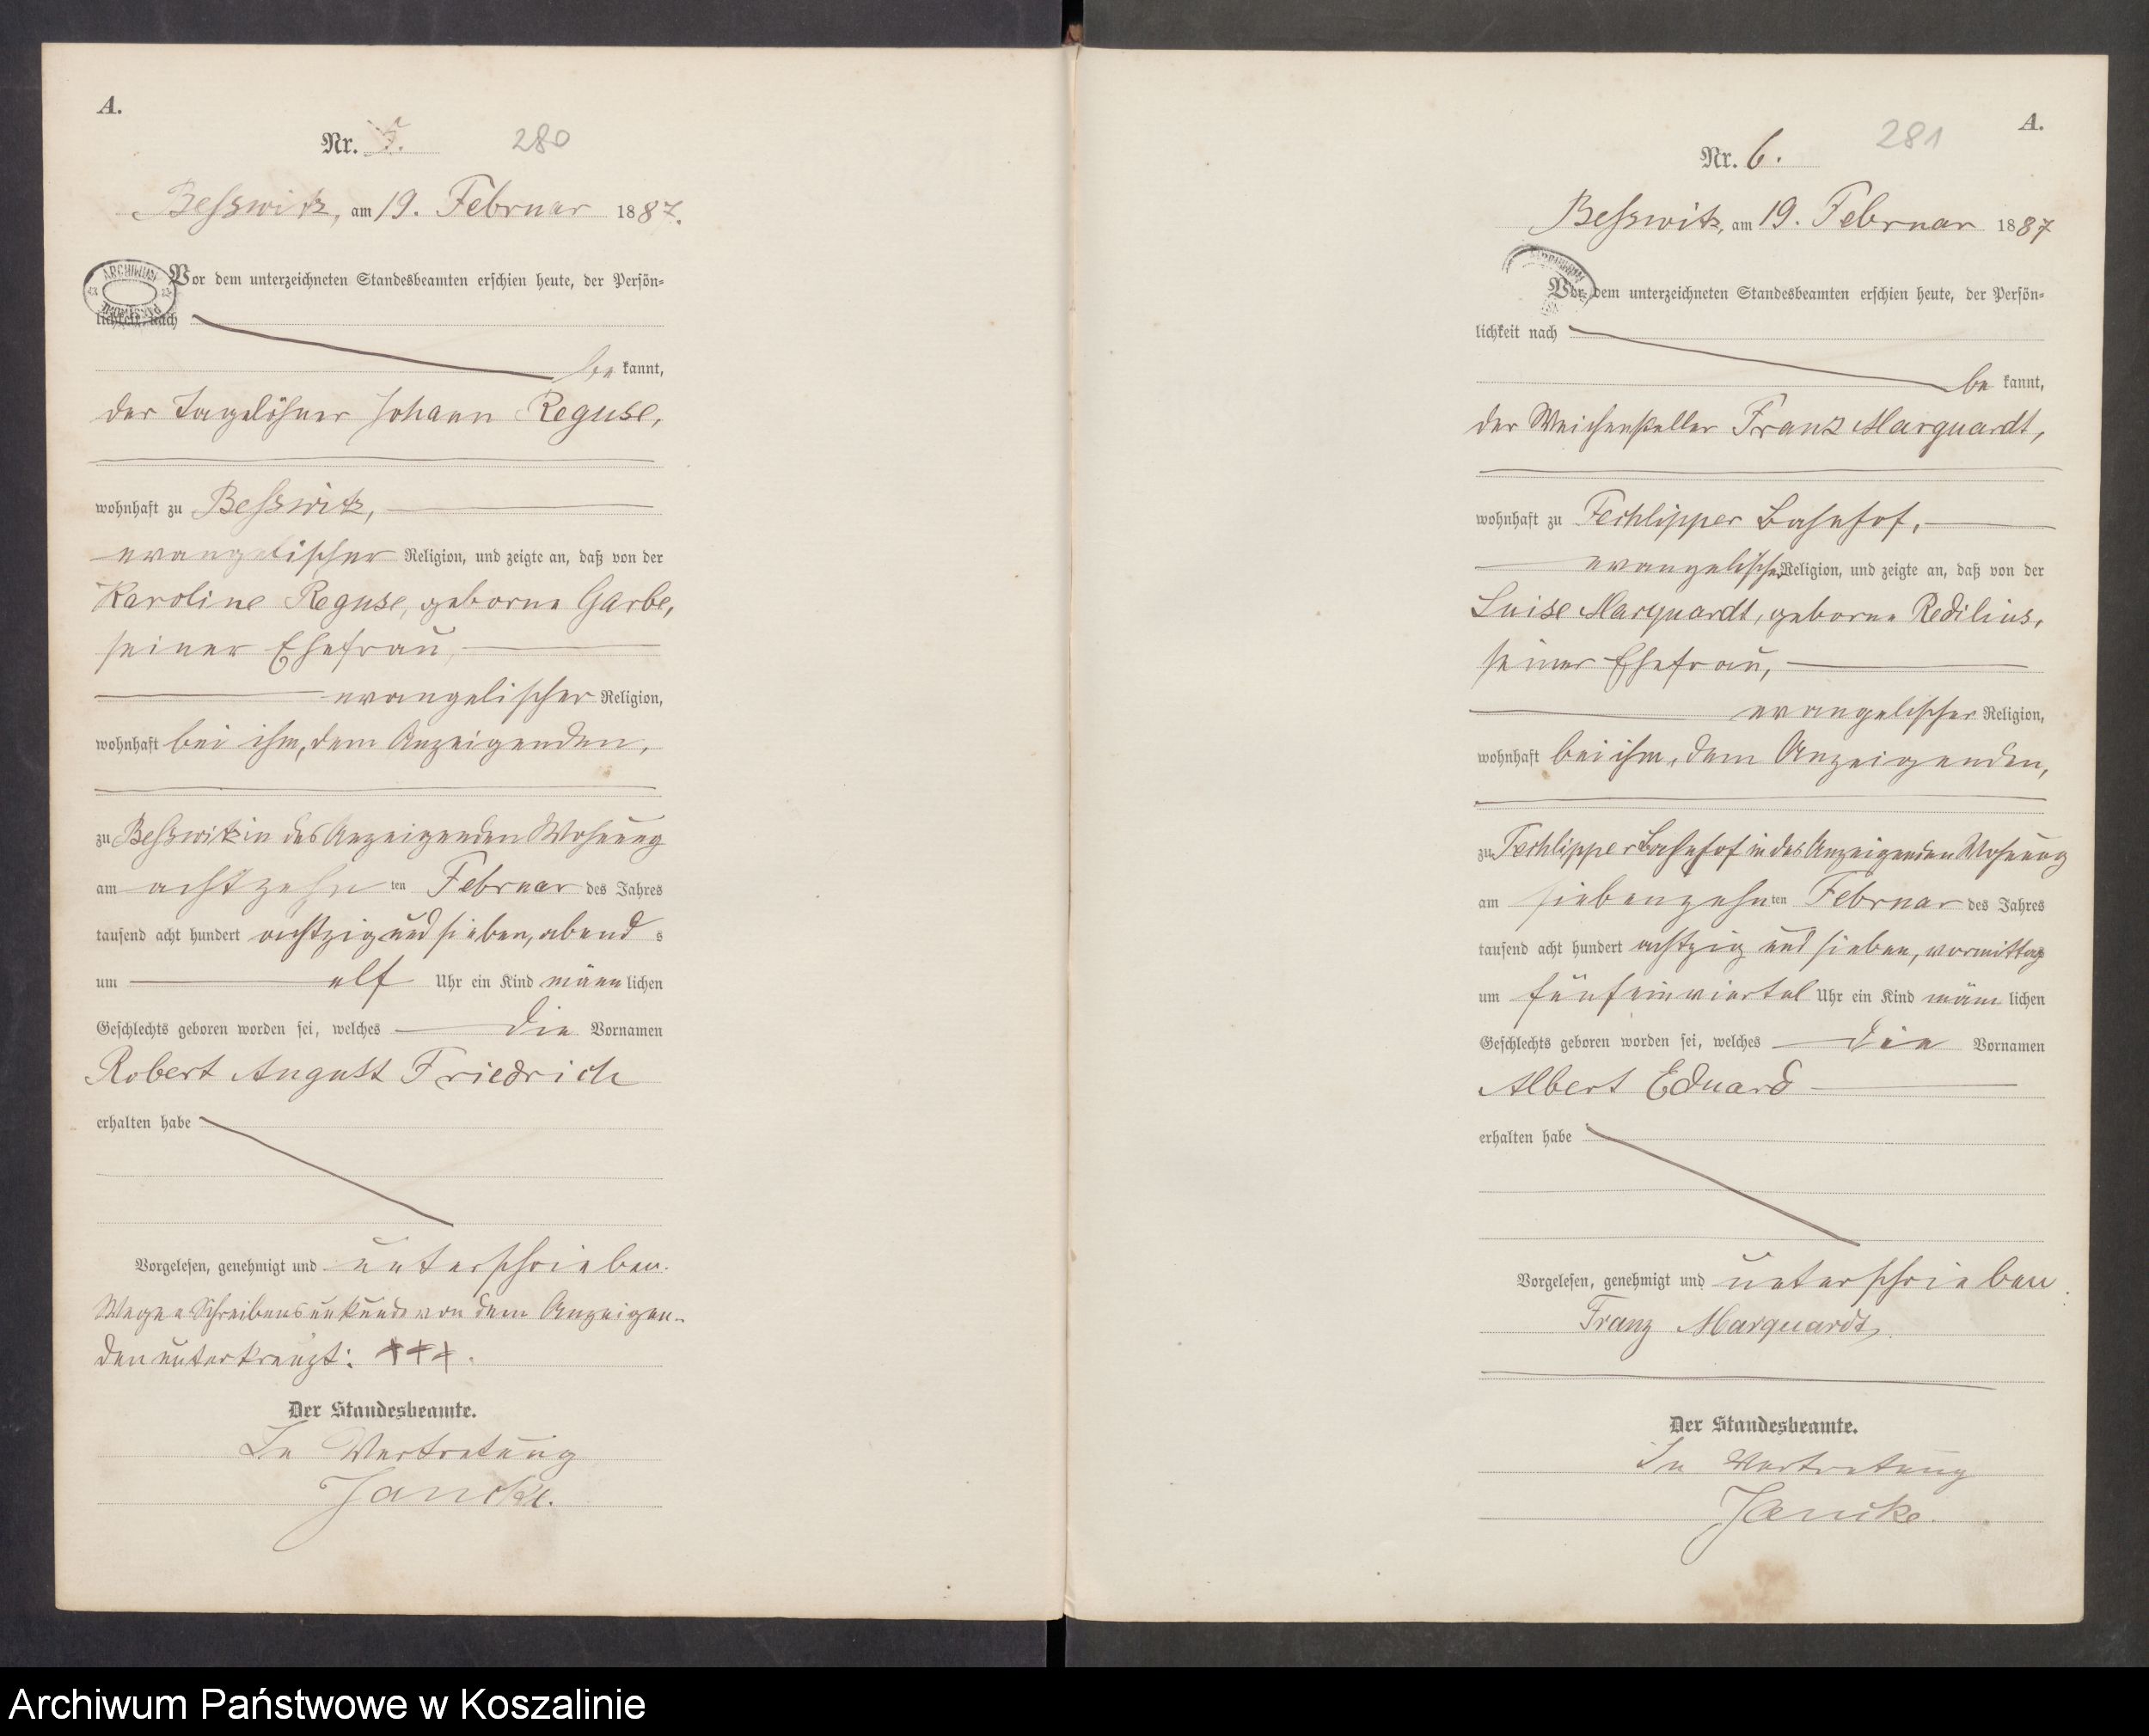 A.
Nr. 5. 280
Beßwitz, am 19. Februar 1887.
ARCHIWUM
Vor dem unterzeichneten Standesbeamten erschien heute, der Persön-
lichkeit nach
be kannt,
der Tagelöhner Johann Reguse,
wohnhaft zu Beßwitz,
evangelischer Religion, und zeigte an, daß von der
Karoline Reguse, geborne Garbe,
seiner Ehefrau,
evangelischer Religion,
wohnhaft bei ihm, dem Anzeigenden,
zu Beßwitz in des Anzeigenden Wohnung
am achtzehn ten Februar des Jahres
tausend acht hundert achtzig und sieben, abend s
um elf Uhr ein Kind männ lichen
Geschlechts geboren worden sei, welches die Vornamen
Robert August Friedrich
erhalten habe
Vorgelesen, genehmigt und unterschrieben.
Wegen Schreibensunkunde von dem Anzeigen-
den unterkreuzt: +++.
Der Standesbeamte.
In Vertretung
Jancke.
A.
Nr. 6. 281
Beßwitz, am 19. Februar 1887
Vor dem unterzeichneten Standesbeamten erschien heute, der Persön-
lichkeit nach
be kannt,
der Weichensteller Franz Marquardt,
wohnhaft zu Techlipper Bahnhof,
evangelischer Religion, und zeigte an, daß von der
Luise Marquardt, geborne Redilius,
seiner Ehefrau,
evangelischer Religion,
wohnhaft bei ihm, dem Anzeigenden,
zu Techlipper Bahnhof in des Anzeigenden Wohnung
am siebenzehn ten Februar des Jahres
tausend acht hundert achtzig und sieben, vormittags
um fünf ein viertel Uhr ein Kind männ lichen
Geschlechts geboren worden sei, welches die Vornamen
Albert Eduard
erhalten habe
Vorgelesen, genehmigt und unterschrieben.
Franz Marquardt
Der Standesbeamte.
In Vertretung
Jancke.
Archiwum Państwowe w Koszalinie